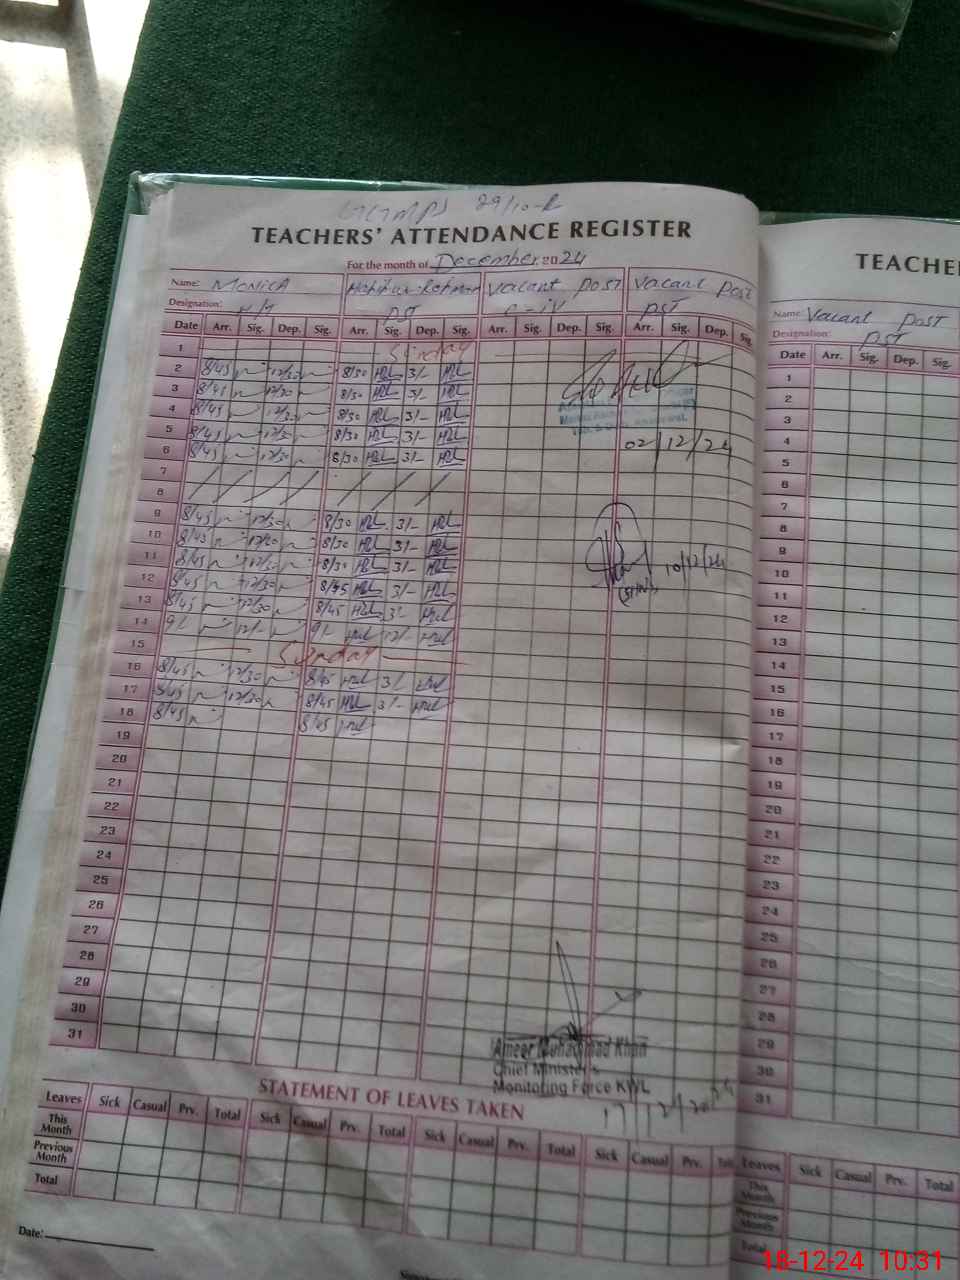 29/10-R
TEACHERS' ATTENDANCE REGISTER
For the month of December 2024
Name: MONICA
Vacant post
Vacant post
Designation:
PST
C-IV
PST
Date Arr. Sig. Dep. Sig. Arr. Sig. Dep. Sig. Arr. Sig. Dep. Sig. Arr. Sig. Dep. Sig.
1 Sunday
2 8/45 12/30 8/30 3/-
3 8/45 12/30 8/30 3/-
4 8/45 12/30 8/30 3/-
5 8/45 12/30 8/30 3/-
6 8/45 12/30 8/30 3/-
02/12/24
7
8
9 8/45 12/30 8/30 3/-
10 8/45 12/30 8/30 3/-
11 8/45 12/30 8/30 3/-
10/12/24
12 8/45 12/30 8/45 3/-
13 8/45 12/30 8/45 3/-
14 9/- 12/- 9/- 12/-
15 Sunday
16 8/45 12/30 8/45 3/-
17 8/45 12/30 8/45 3/-
18 8/45 8/45
19
20
21
22
23
24
25
26
27
28
29
30
31
Ameer Muhammad Khan
Chief Minister's
Monitoring Force KWL
17/12/2024
STATEMENT OF LEAVES TAKEN
Leaves Sick Casual Prv. Total Sick Casual Prv. Total Sick Casual Prv. Total Sick Casual Prv.
This Month
Previous Month
Total
Date:
TEACHE
Name: Vacant post
Designation: PST
Date Arr. Sig. Dep. Sig.
1
2
3
4
5
6
7
8
9
10
11
12
13
14
15
16
17
18
19
20
21
22
23
24
25
26
27
28
29
30
31
Leaves Sick Casual Prv. Total
This Month
Previous Month
Total
18-12-24 10:31